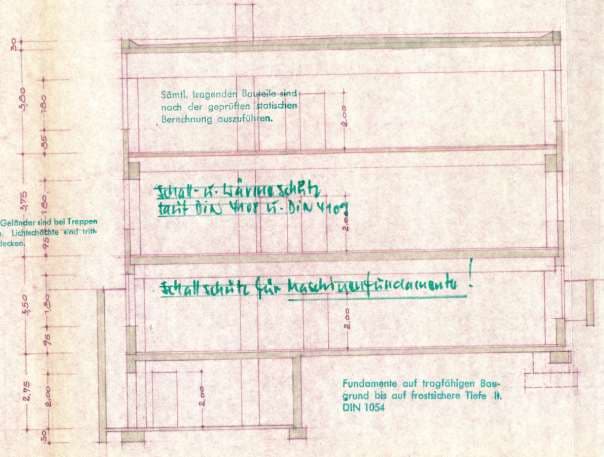 Sämtl. tragenden Bauteile sind
nach der geprüften statischen
Berechnung auszuführen.
2.00
Schall- u. Wärmeschutz
laut DIN 4108 u. DIN 4109
2.00
Geländer sind bei Treppen
Lichtschächte sind tritt-
decken.
Schallschutz für Maschinenfundamente!
2.00
Fundamente auf tragfähigen Bau-
grund bis auf frostsichere Tiefe lt.
DIN 1054
2.00
30
3,75
1,80
95
3,50
95
2,75
2,00